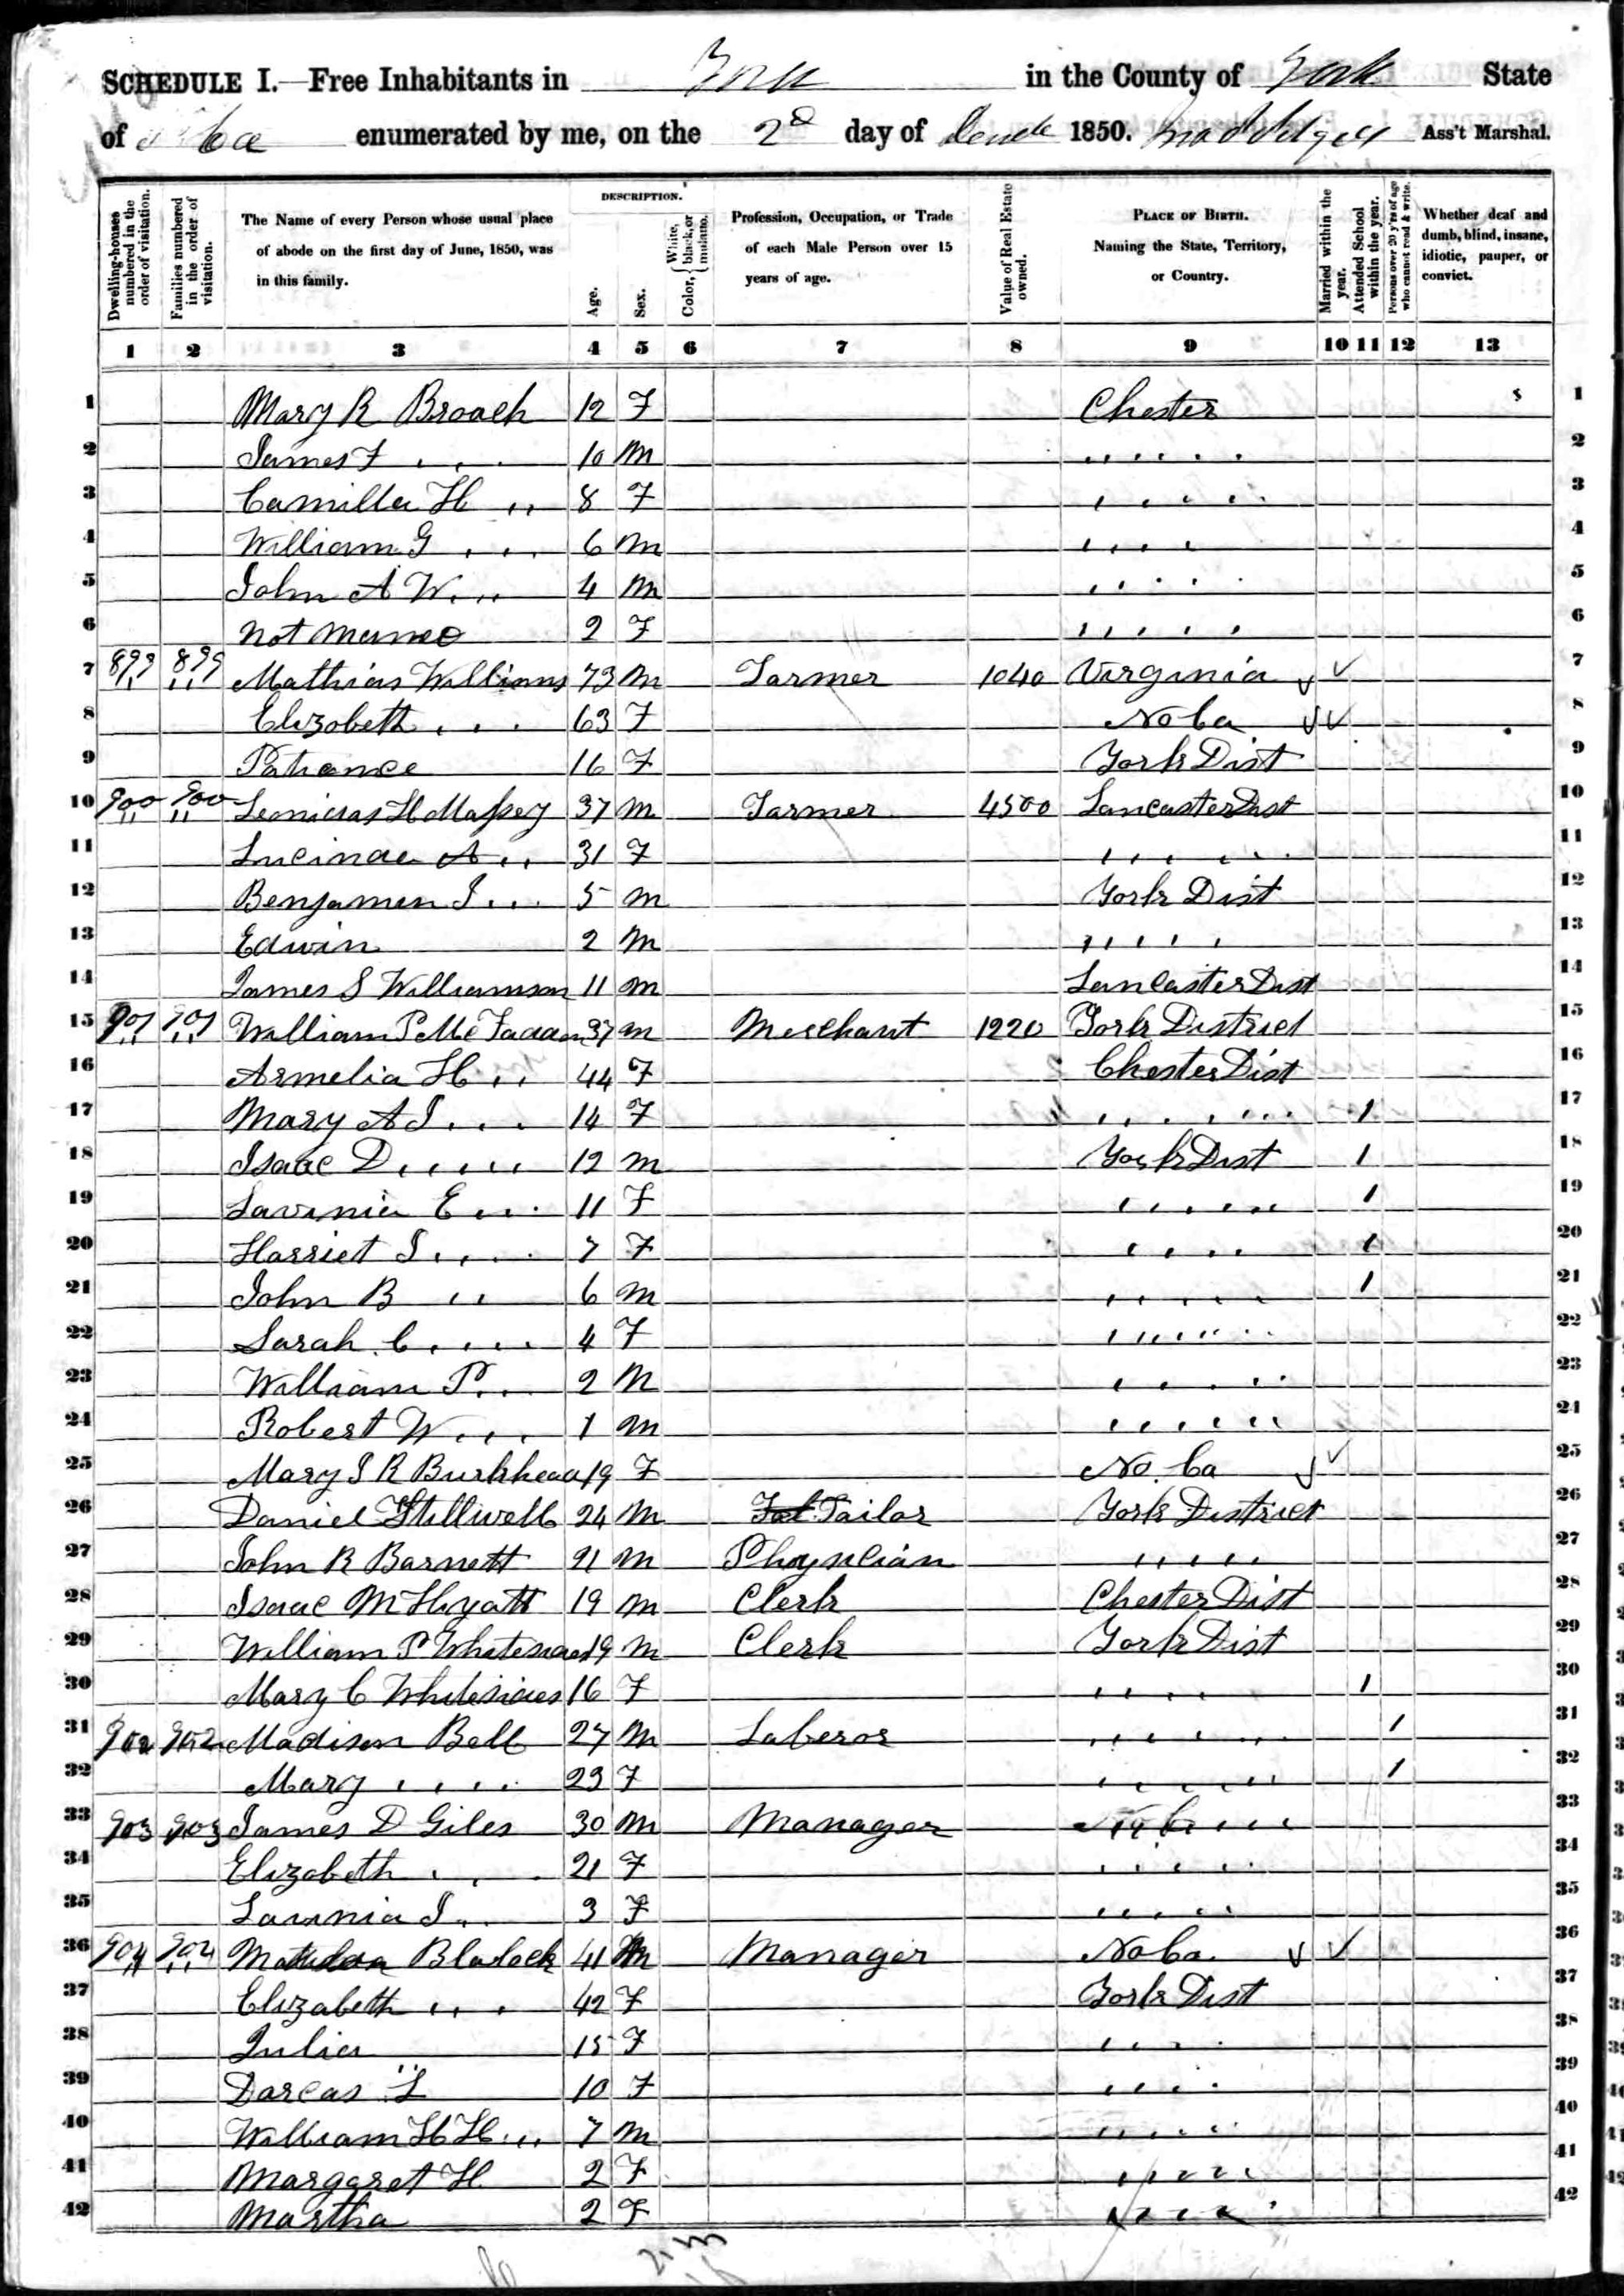 SCHEDULE I.—Free Inhabitants in York in the County of York State
of So Ca enumerated by me, on the 2d day of 1850. Ass't Marshal.
Dwelling-houses numbered in the order of visitation.
Families numbered in the order of visitation.
The Name of every Person whose usual place of abode on the first day of June, 1850, was in this family.
DESCRIPTION.
Age.
Sex.
Color, { White, black, or mulatto.
Profession, Occupation, or Trade of each Male Person over 15 years of age.
Value of Real Estate owned.
PLACE OF BIRTH. Naming the State, Territory, or Country.
Married within the year.
Attended School within the year.
Persons over 20 y'rs of age who cannot read & write.
Whether deaf and dumb, blind, insane, idiotic, pauper, or convict.
1 2 3 4 5 6 7 8 9 10 11 12 13
1 Mary R Broach 12 F Chester 1
2 James F " 10 M " 2
3 Camilla H " 8 F " 3
4 William G " 6 M " 4
5 John A W " 4 M " 5
6 not named 2 F " 6
7 899 899 Mathias Williams 73 M Farmer 1040 Virginia ✓ 7
8 Elizabeth " 63 F No Ca ✓ 8
9 Patience 16 F York Dist 9
10 900 900 H Massey 37 M Farmer 4500 Lancaster Dist 10
11 Lucinda A " 31 F " 11
12 Benjamin J " 5 M York Dist 12
13 Edwin 2 M " 13
14 James S Williamson 11 M Lancaster Dist 14
15 901 901 William P McFadden 37 M Merchant 1220 York District 15
16 Armelia H " 44 F Chester Dist 16
17 Mary A J " 14 F " 1 17
18 Isaac D " 12 M York Dist 1 18
19 Lavinia E " 11 F " 1 19
20 Harriet J " 7 F " 1 20
21 John B " 6 M " 1 21
22 Sarah C " 4 F " 22
23 William P " 2 M " 23
24 Robert W " 1 M " 24
25 Mary J R Burkhead 19 F No. Ca ✓ 25
26 Daniel Stillwell 24 M Tailor York District 26
27 John R Barnett 21 M Physician " 27
28 Isaac M Hyatt 19 M Clerk Chester Dist 28
29 William P Whitesides 19 M Clerk York Dist 29
30 Mary C Whitesides 16 F " 1 30
31 902 902 Madison Bell 27 M Laberor " 1 31
32 Mary " 23 F " 1 32
33 903 903 James D Giles 30 M Manager " 33
34 Elizabeth " 21 F " 34
35 Lavinia J " 3 F " 35
36 904 904 Blalock 41 M Manager No Ca. ✓ 36
37 Elizabeth " 42 F York Dist 37
38 Julia " 15 F " 38
39 Darcas L 10 F " 39
40 William H H " 7 M " 40
41 Margaret H 2 F " 41
42 Martha 2 F " 42